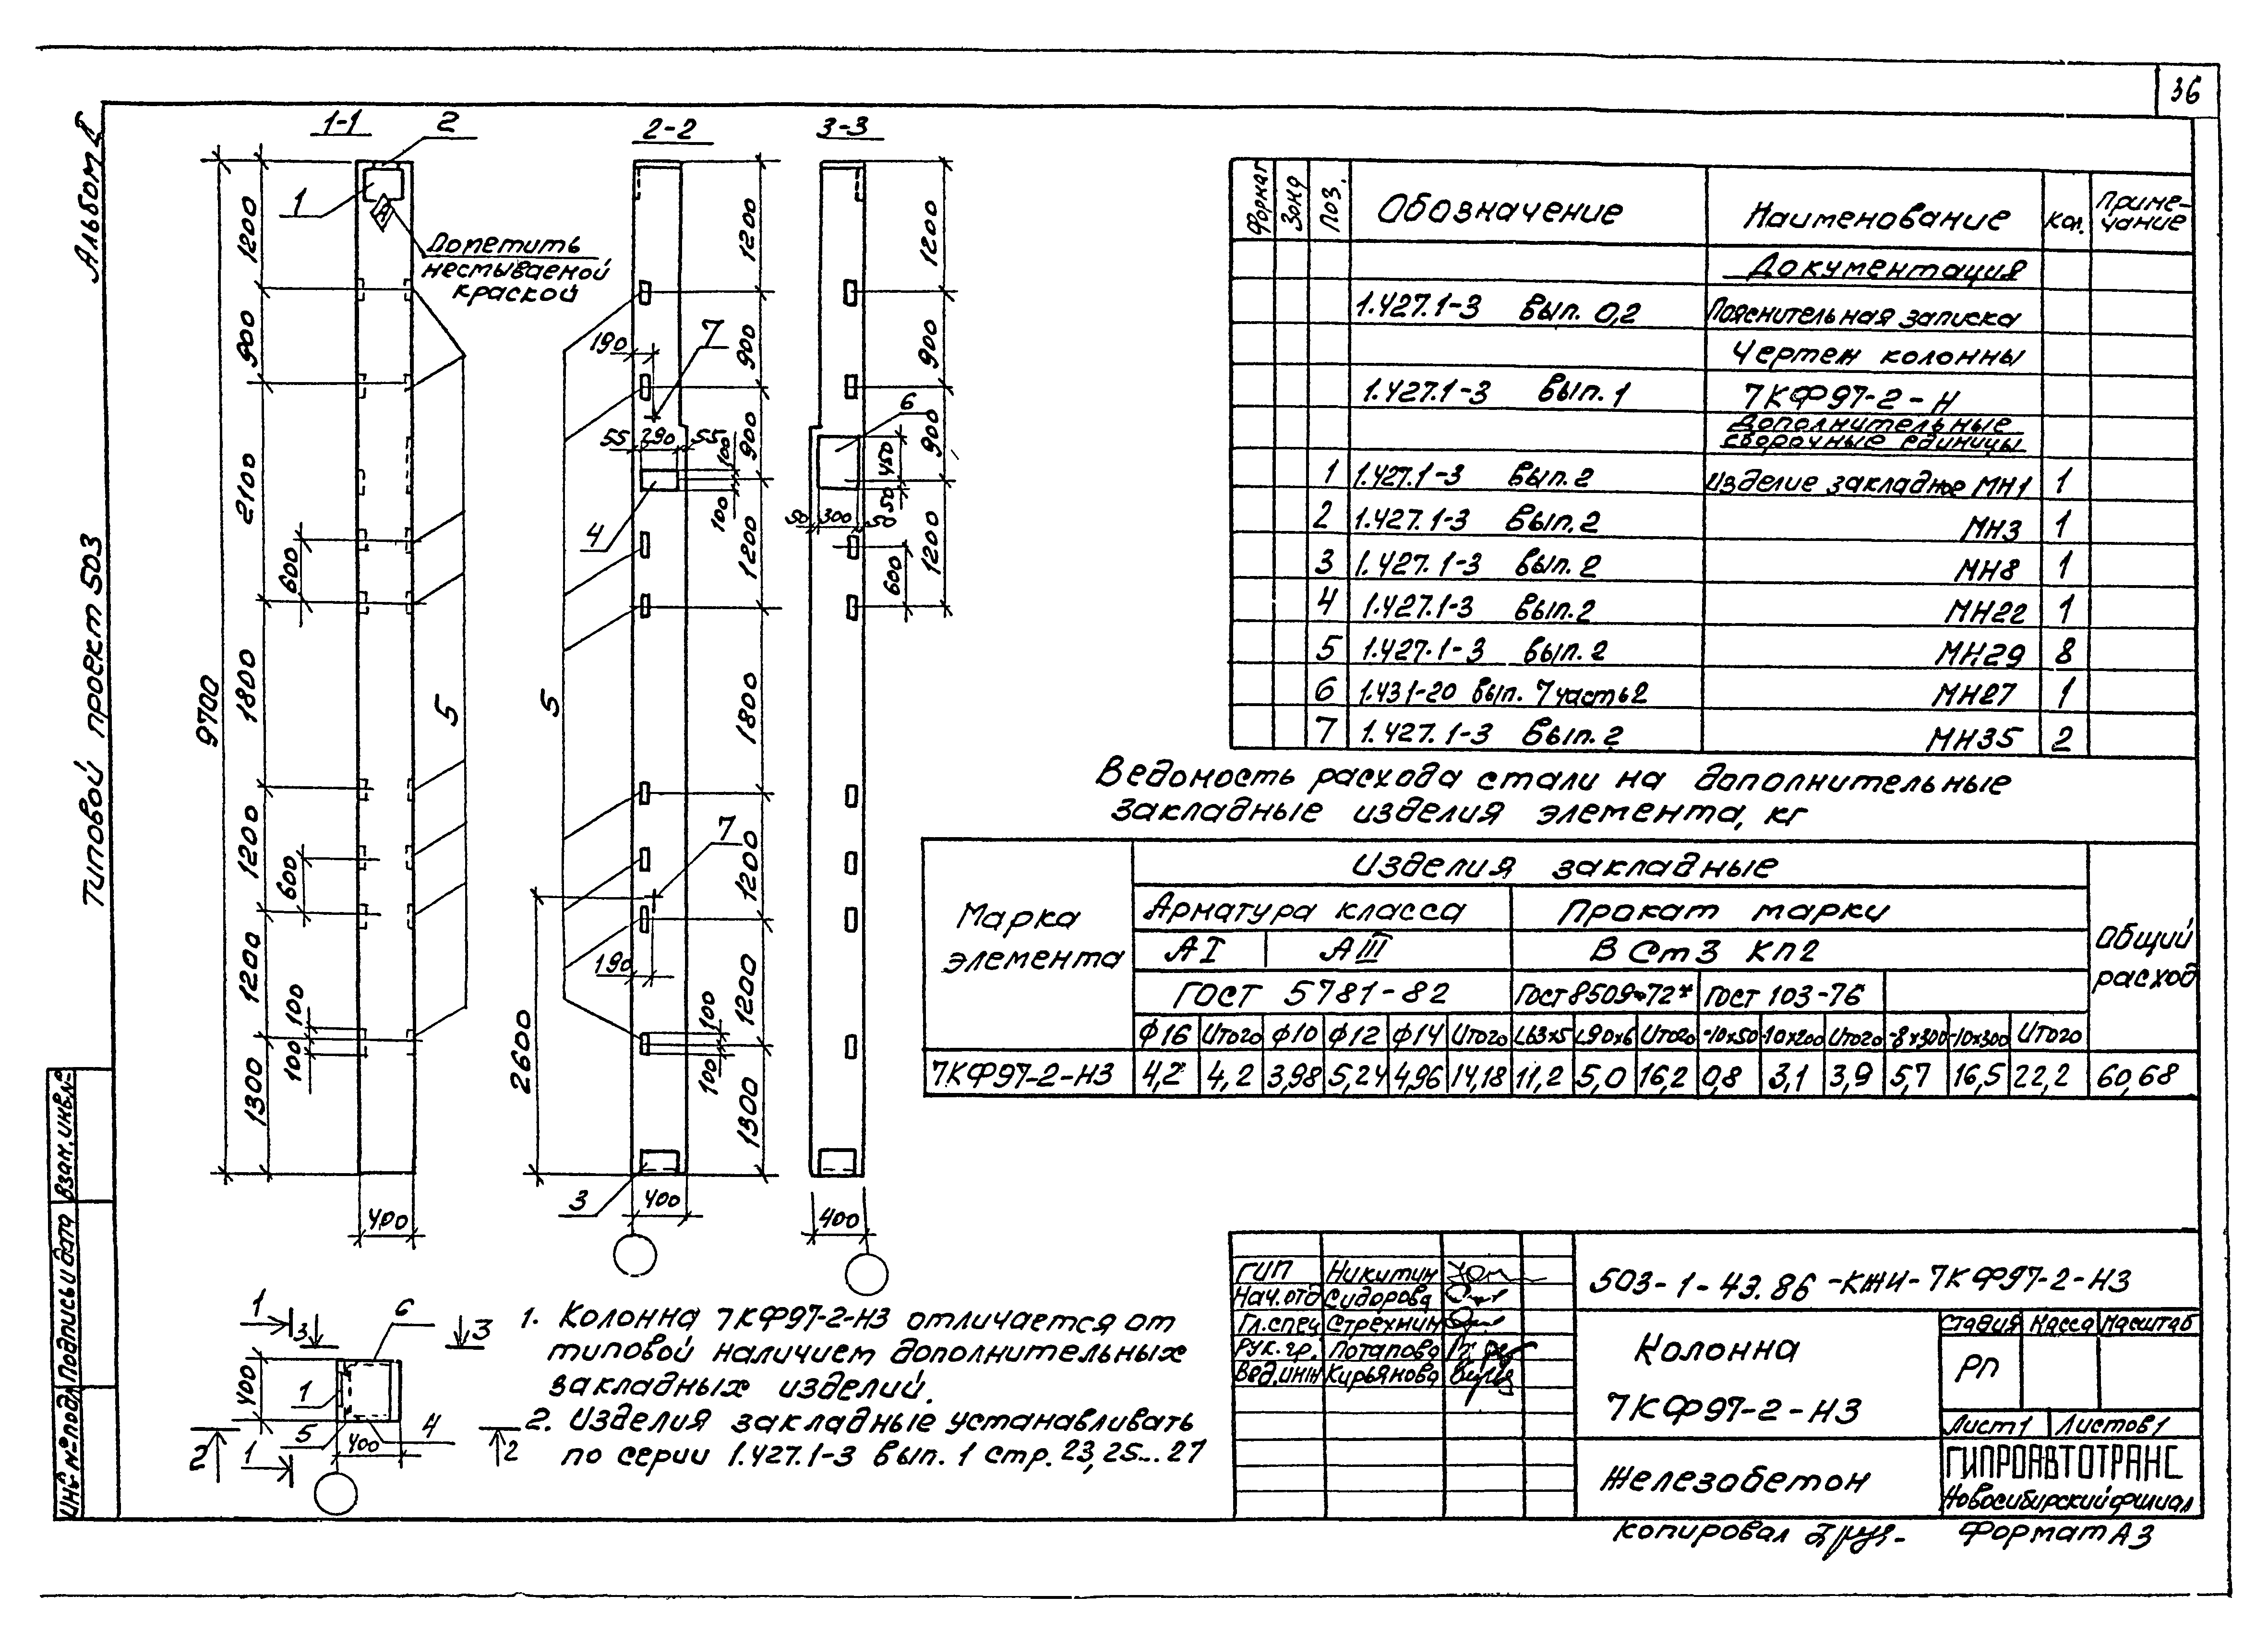 36
Альбом
Типовой проект 503
Взам. инв.№
Подпись и дата
Инв.№подл
1-1
2
1
Пометить
несмываемой
краской
9700
1200
900
2100
600
1800
1200
600
1200
100
100
1300
400
5
2-2
190
7
55 290 55
100
100
4
5
7
190
2600
100
100
3
400
1200
900
900
1200
1800
1200
1200
1300
3-3
6
450
50
50 300 50
600
1200
900
900
1200
400
1
3
6
3
400
1
5
400
4
2
1
2
Формат
Зона
Поз.
Обозначение
Наименование
Кол.
Приме-
чание
Документация
1.427.1-3 Вып. 0,2 Пояснительная записка
Чертеж колонны
1.427.1-3 Вып. 1 7КФ97-2-Н
Дополнительные
сборочные единицы
1 1.427.1-3 Вып. 2 Изделие закладное МН1 1
2 1.427.1-3 Вып. 2 МН3 1
3 1.427.1-3 Вып. 2 МН8 1
4 1.427.1-3 Вып. 2 МН22 1
5 1.427.1-3 Вып. 2 МН29 8
6 1.431-20 Вып. 7 часть 2 МН27 1
7 1.427.1-3 Вып. 2 МН35 2
Ведомость расхода стали на дополнительные
закладные изделия элемента, кг
Марка
элемента
Изделия закладные
Общий
расход
Арматура класса Прокат марки
АI АIII В Ст3 КП2
ГОСТ 5781-82 ГОСТ 8509-72* ГОСТ 103-76
Ф16 Итого Ф10 Ф12 Ф14 Итого L63х5 L90х6 Итого -10х50 -10х200 Итого -8х300 -10х300 Итого
7КФ97-2-Н3 4,2 4,2 3,98 5,24 4,96 14,18 11,2 5,0 16,2 0,8 3,1 3,9 5,7 16,5 22,2 60,68
1. Колонна 7КФ97-2-Н3 отличается от
типовой наличием дополнительных
закладных изделий.
2. Изделия закладные устанавливать
по серии 1.427.1-3 вып. 1 стр. 23, 25...27
ГИП Никитин
Нач.отд Сидорова
Гл.спец Стрехнин
Рук.гр. Потапова
Вед.инж Кирьянова
503-1-43.86-КЖИ-7КФ97-2-Н3
Колонна
7КФ97-2-Н3
Стадия Масса Масштаб
РП
Лист 1 Листов 1
Железобетон
ГИПРОАВТОТРАНС
Новосибирский филиал
Копировал
Формат А3